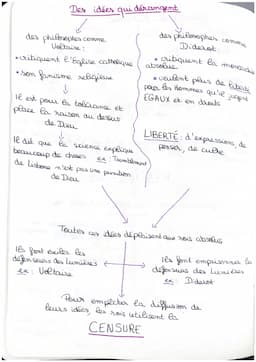 Des idées qui dérangent
des philosophes comme
Voltaire :
• critiquent l'Eglise catholique
• son fanisme religieux
Il est pour la tolérance et
place la raison au dessus
de Dieu
Il dit que la science explique
beaucoup de choses ex: Tremblement
de Lisbone n'est pas une punition
de Dieu
des philosophes comme
Diderot
• critiquent la monarchie
absolue
• veulent plus de liberté
pour les hommes qu'ils jugent
EGAUX et en droits
LIBERTÉ : d'expressions, de
penser, de culte
Toutes ces idées déplaisent aux rois absolus
Ils font exiler les
défenseurs des lumières
ex : Voltaire
Ils font emprisonner les
défenseurs des Lumières
ex : Diderot
Pour empêcher la diffusion de
leurs idées, les rois utilisent la
CENSURE